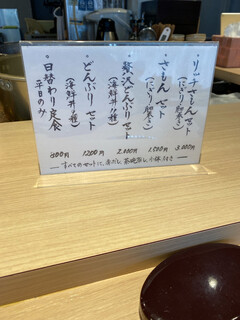 ・リッチさもんセット
(にぎり、細巻き)
3,000円
・さもんセット
(にぎり、細巻き)
1,500円
・贅沢どんぶりセット
(海鮮丼6種)
2,000円
・どんぶりセット
(海鮮丼4種)
1,200円
・日替わり定食
平日のみ
800円
すべてのセットに、赤だし、茶碗蒸し、小鉢付き